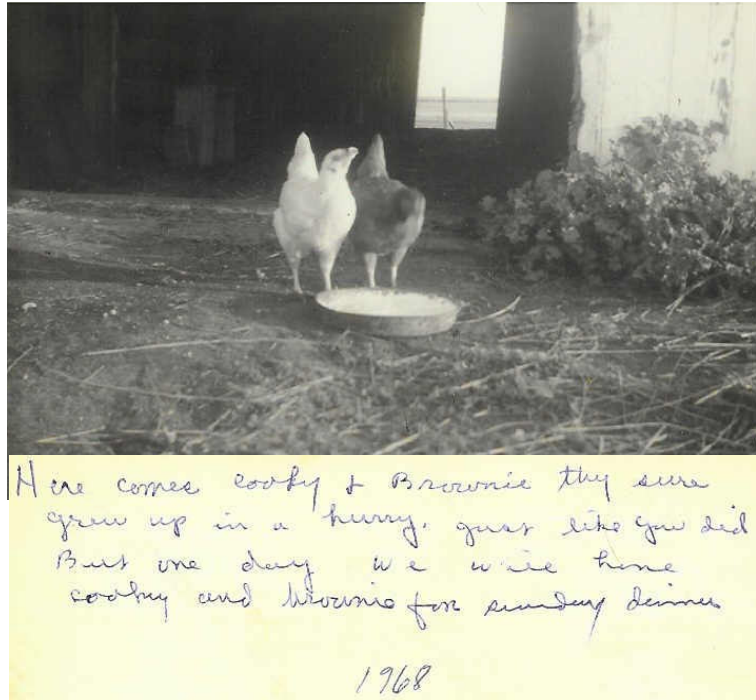 Here comes cooky & Brownie thy sure
grew up in a hurry. just like you did
But one day we will have
cooky and brownie for sunday dinner
1968